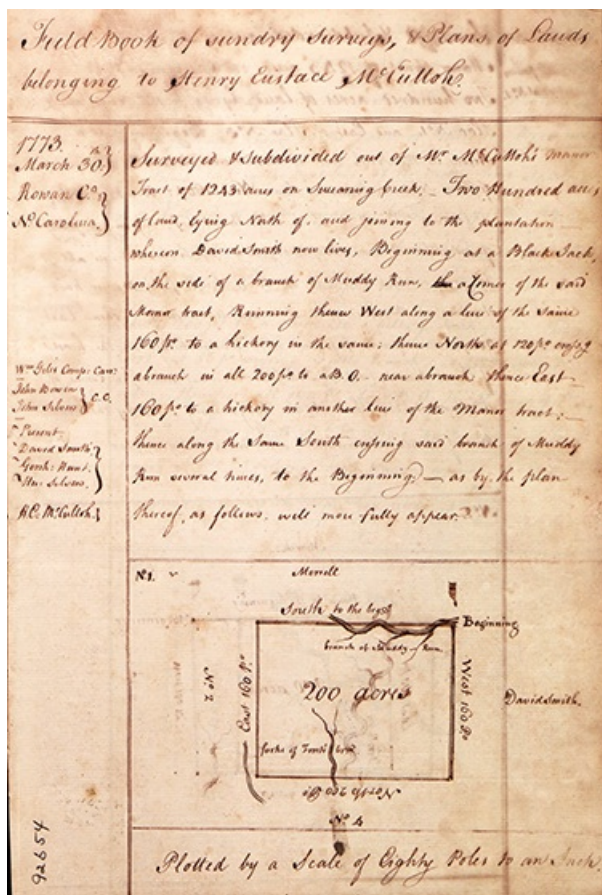 Field Book of sundry Surveys, & Plans of Lands
belonging to Henry Eustace McCulloh.
1773.
March 30.
Rowan Co.
No. Carolina.
Surveyed & subdivided out of Mr. McCulloh's manor
Tract of 1243 acres on Swearing Creek. Two Hundred acres
of land, lying North of, and joining to the plantation
whereon David Smith now lives, Beginning at a Black Jack,
on the side of a branch of Muddy Run, a Corner of the said
Manor tract, Running thence West along a line of the same
160 po. to a hickory in the same; thence North at 120 po. crossg
a branch in all 200 po. to a B.O. near a branch thence East
160 po. to a hickory in another line of the Manor tract;
thence along the Same South crossing said branch of Muddy
Run several times, to the Beginning — as by the plan
thereof, as follows, will more fully appear.
Wm. Giles Comp: Carr:
John Bowen
John
C.C.
Present
David Smith
Hunt.
McCulloh.
No 1.
Merrell
South to the begg
Beginning
branch of Muddy Run
200 acres
East 160 po.
West 160 po.
No 2
David Smith.
forks of
North 200 po.
No 4
Plotted by a Scale of Eighty Poles to an Inch.
92654